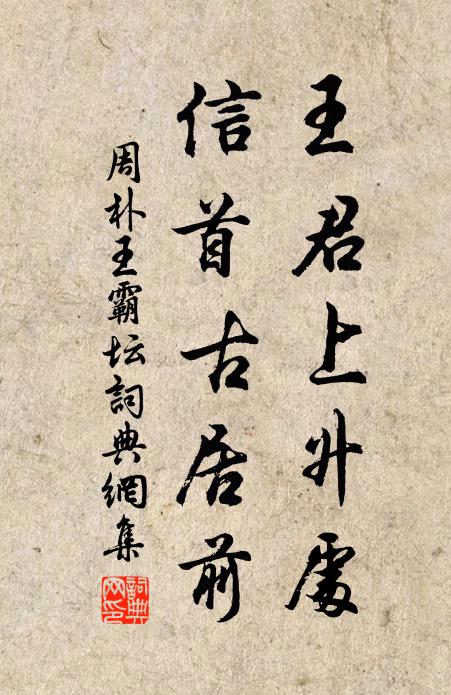 王君上升處
信首古居前
周朴王霸坛詞典網集
詞典網印